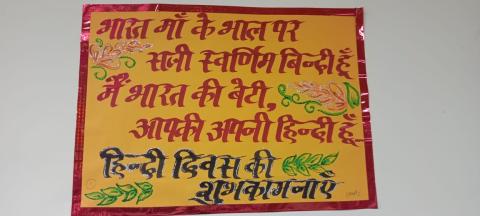 भारत माँ के भाल पर
सजी स्वर्णिम बिन्दी हूँ
मैं भारत की बेटी,
आपकी अपनी हिन्दी हूँ
हिन्दी दिवस की
शुभकामनाएँ